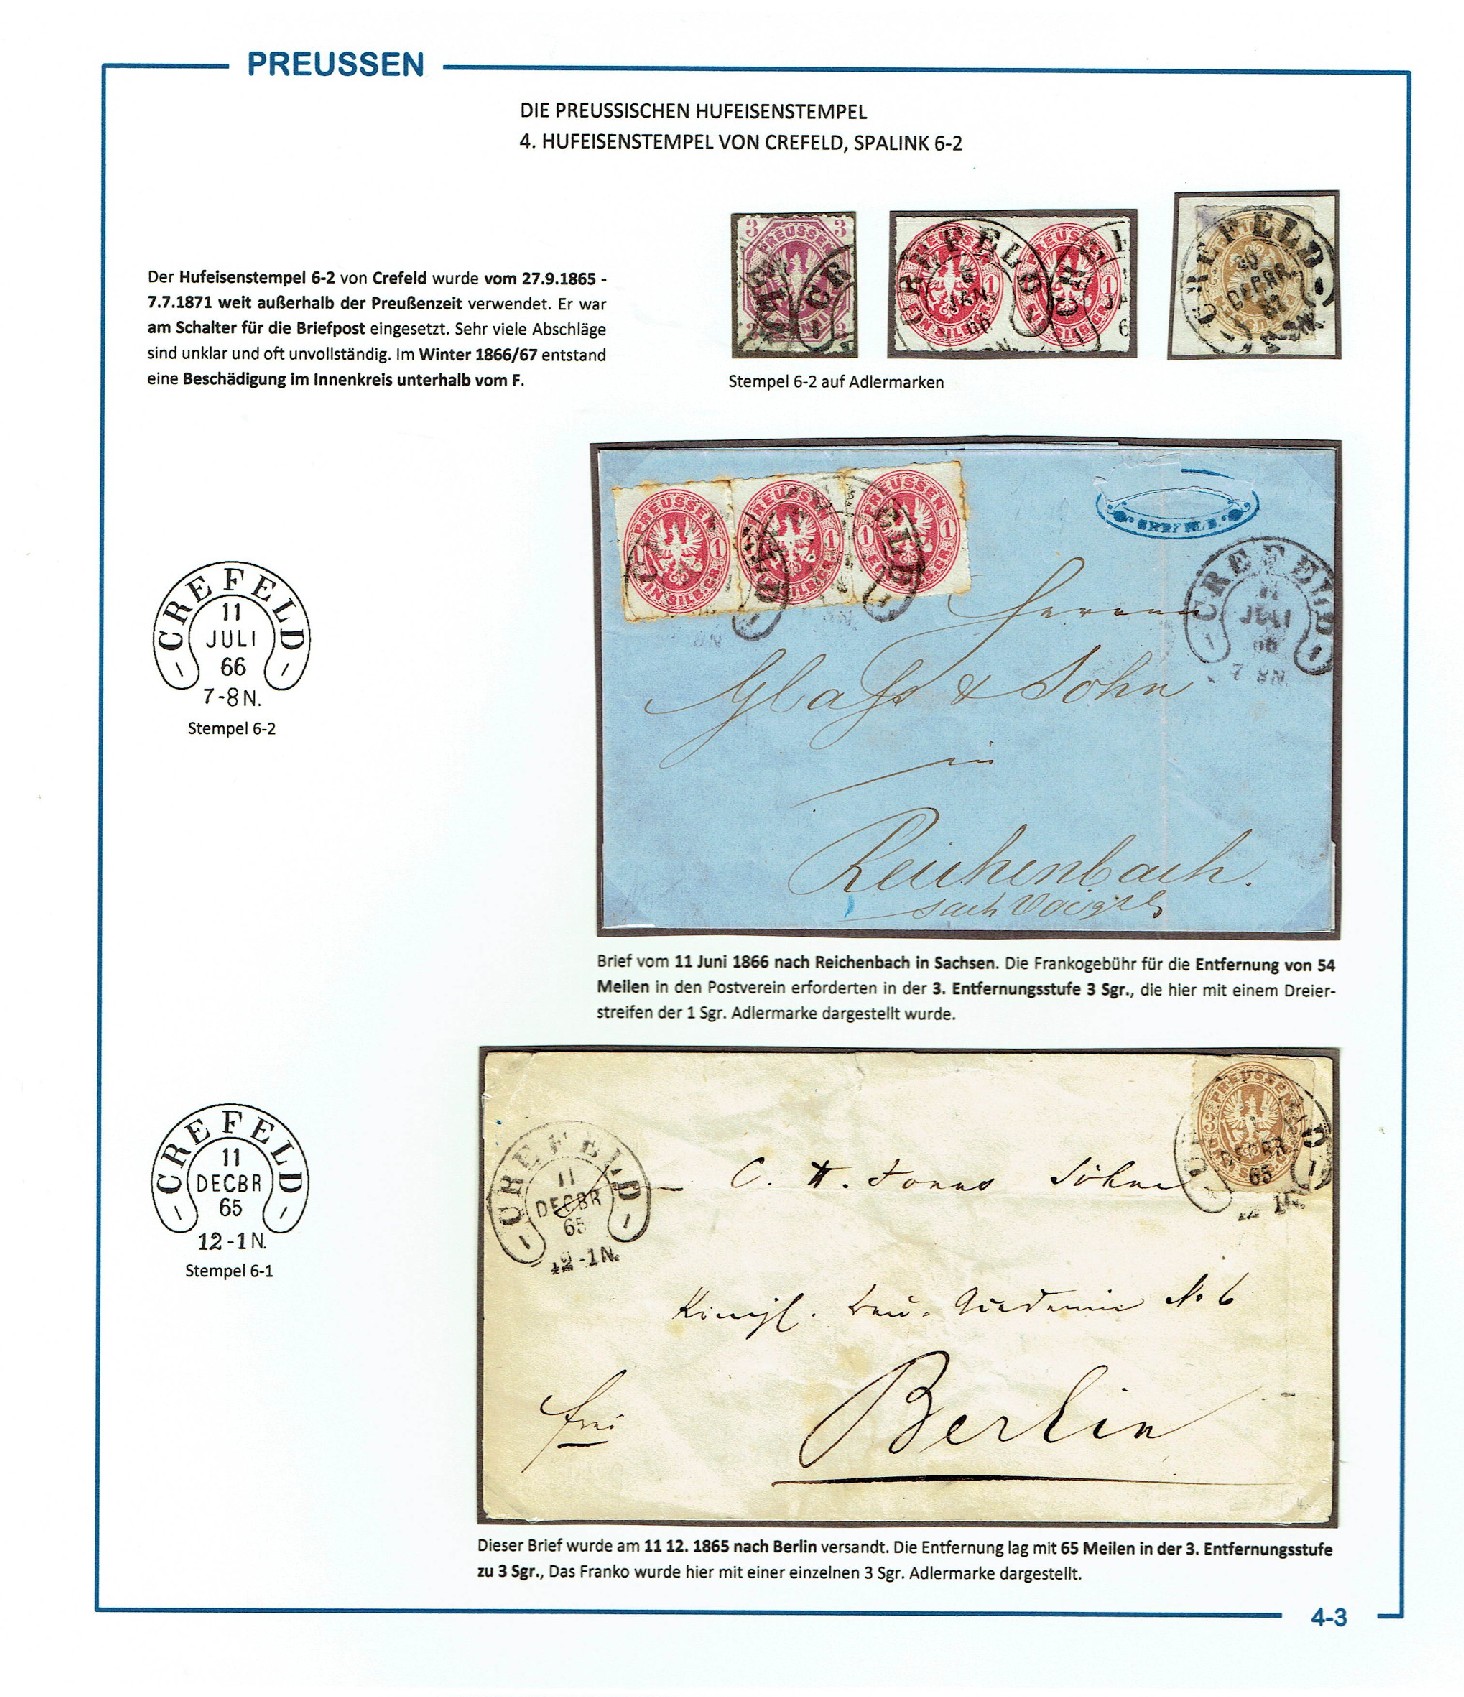 PREUSSEN
DIE PREUSSISCHEN HUFEISENSTEMPEL
4. HUFEISENSTEMPEL VON CREFELD, SPALINK 6-2
Der Hufeisenstempel 6-2 von Crefeld wurde vom 27.9.1865 -
7.7.1871 weit außerhalb der Preußenzeit verwendet. Er war
am Schalter für die Briefpost eingesetzt. Sehr viele Abschläge
sind unklar und oft unvollständig. Im Winter 1866/67 entstand
eine Beschädigung im Innenkreis unterhalb vom F.
3 3
PREUSSEN
PREUSSEN
CREFELD
JAN.
66
CREFELD
Stempel 6-2 auf Adlermarken
CREFELD
11
JULI
66
7-8N.
Stempel 6-2
PREUSSEN
1
EIN SILB.GR.
PREUSSEN
1
PREUSSEN
1 1
CREFELD
CREFELD
11
JULI
66
7 8N.
Herren
Glass & Sohn
in
Reichenbach.
Brief vom 11 Juni 1866 nach Reichenbach in Sachsen. Die Frankogebühr für die Entfernung von 54
Meilen in den Postverein erforderten in der 3. Entfernungsstufe 3 Sgr., die hier mit einem Dreier-
streifen der 1 Sgr. Adlermarke dargestellt wurde.
CREFELD
11
DECBR
65
12-1N.
Stempel 6-1
CREFELD
11
DECBR
65
12-1N.
PREUSSEN
DECBR
65
C. H. Söhne
Königl. Akademie No 6
frei
Berlin
Dieser Brief wurde am 11 12. 1865 nach Berlin versandt. Die Entfernung lag mit 65 Meilen in der 3. Entfernungsstufe
zu 3 Sgr., Das Franko wurde hier mit einer einzelnen 3 Sgr. Adlermarke dargestellt.
4-3